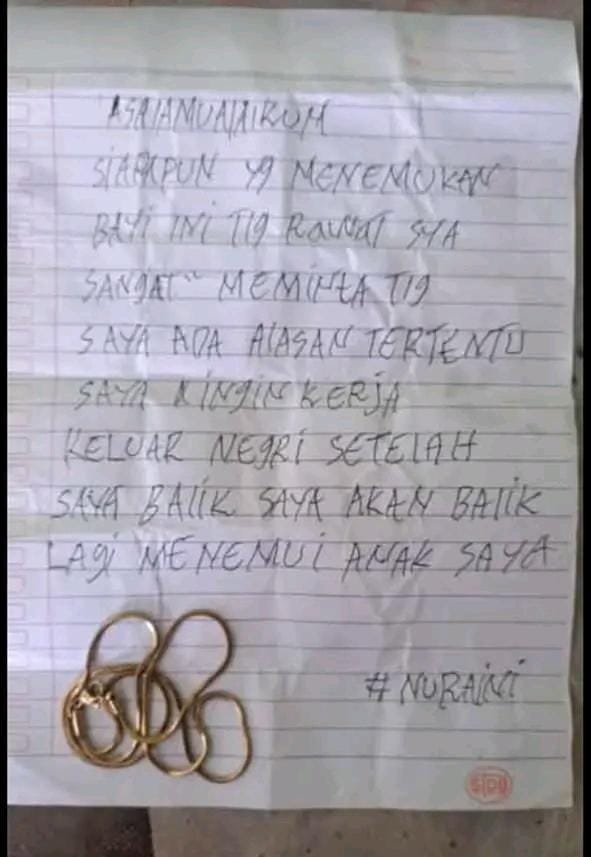 ASALAMUALAIKUM
SiAPAPUN yg MENEMUKAN
BAYi iNi Tlg RaWAT SYA
SANgAT" MEMiNtA Tlg
SAYA ADA AlASAN TERTENTU
SAYA iNgiN KERJA
KELUAR NEgRi SETELAH
SAYA BALiK SAYA AKAN BALiK
LAgi MENEMUi ANAK SAYA
# NURAiNi
SiDU